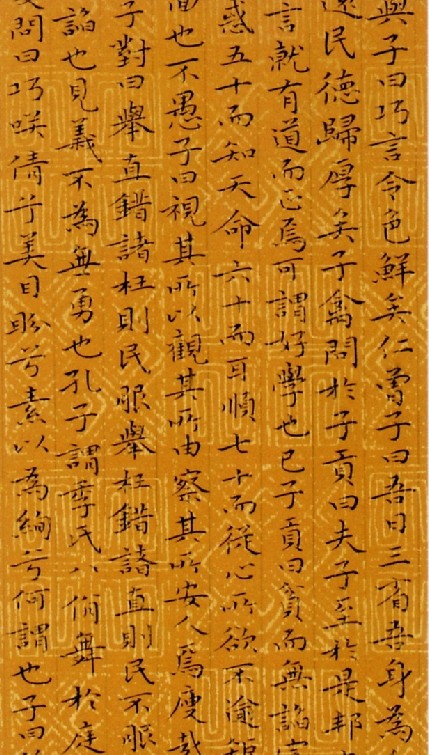 與子曰巧言令色鮮矣仁曾子曰吾日三省吾身為
遠民德歸厚矣子禽問於子貢曰夫子至於是邦
言就有道而正焉可謂好學也已子貢曰貧而無諂
惑五十而知天命六十而耳順七十而從心所欲不逾
也不愚子曰視其所以觀其所由察其所安人焉廋哉
子對曰舉直錯諸枉則民服舉枉錯諸直則民不服
諂也見義不為無勇也孔子謂季氏八佾舞於庭
問曰巧咲倩兮美目盼兮素以為絢兮何謂也子曰